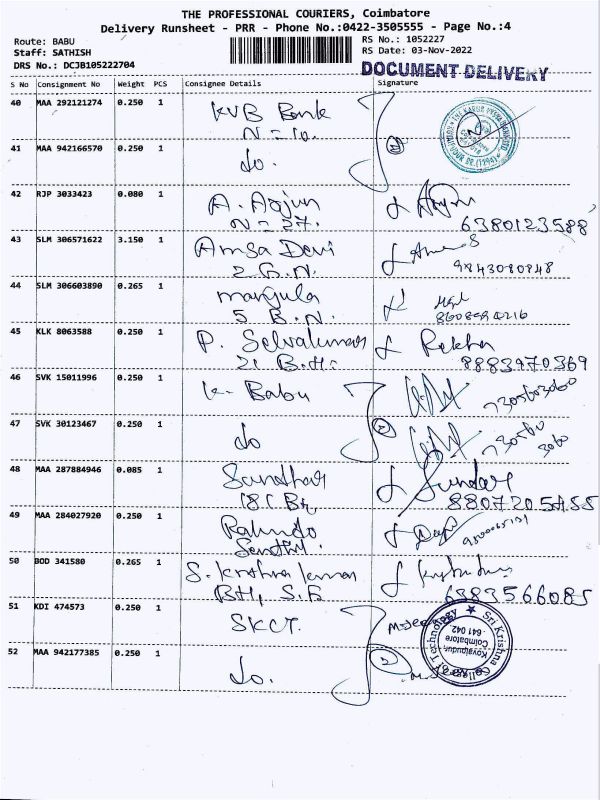 THE PROFESSIONAL COURIERS, Coimbatore
Delivery Runsheet - PRR - Phone No.:0422-3505555 - Page No.:4
Route: BABU
Staff: SATHISH
DRS No.: DCJB105222704
RS No.: 1052227
RS Date: 03-Nov-2022
DOCUMENT DELIVERY
S No Consignment No Weight PCS Consignee Details Signature
40 MAA 292121274 0.250 1 KVB Bank
N = 10.
41 MAA 942166570 0.250 1 do.
42 RJP 3033423 0.080 1 A. Arjun
N = 27.
6380123588
43 SLM 306571622 3.150 1 Amsa Devi
2 G.N.
9843080848
44 SLM 306603890 0.265 1 manjula
5 B.N.
45 KLK 8063588 0.250 1 P. Selvakumar Rekha
21 B.H. 8883970369
46 SVK 15011996 0.250 1 K. Babu
47 SVK 30123467 0.250 1 do 2
48 MAA 287884946 0.085 1 Sundar
49 MAA 284027920 0.250 1
50 BOD 341580 0.265 1 S. Krishna kumar
6383566085
51 KDI 474573 0.250 1 SKCT.
52 MAA 942177385 0.250 1 do. 2
Sri Krishna College of Technology
Kovaipudur,
Coimbatore
641 042.